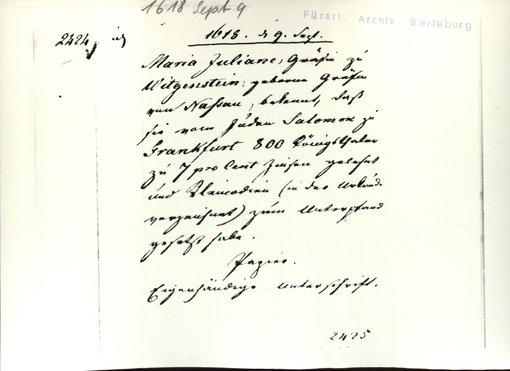 1618 Sept 9
Fürstl. Archiv Berleburg
2424
1618. d 9. Sept.
Maria Juliane, Gräfin zu
Witgenstein, geborne Gräfin
von Nassau, bekennt, daß
sie vom Juden Salomon zu
Frankfurt 800 Königsthaler
zu 7 pro Cent Zinsen gelehnt
und Kleinodien (in der Urkund.
verzeichnet) zum Unterpfand
gesetzt habe.
Papier.
Eigenhändige Unterschrift.
2425